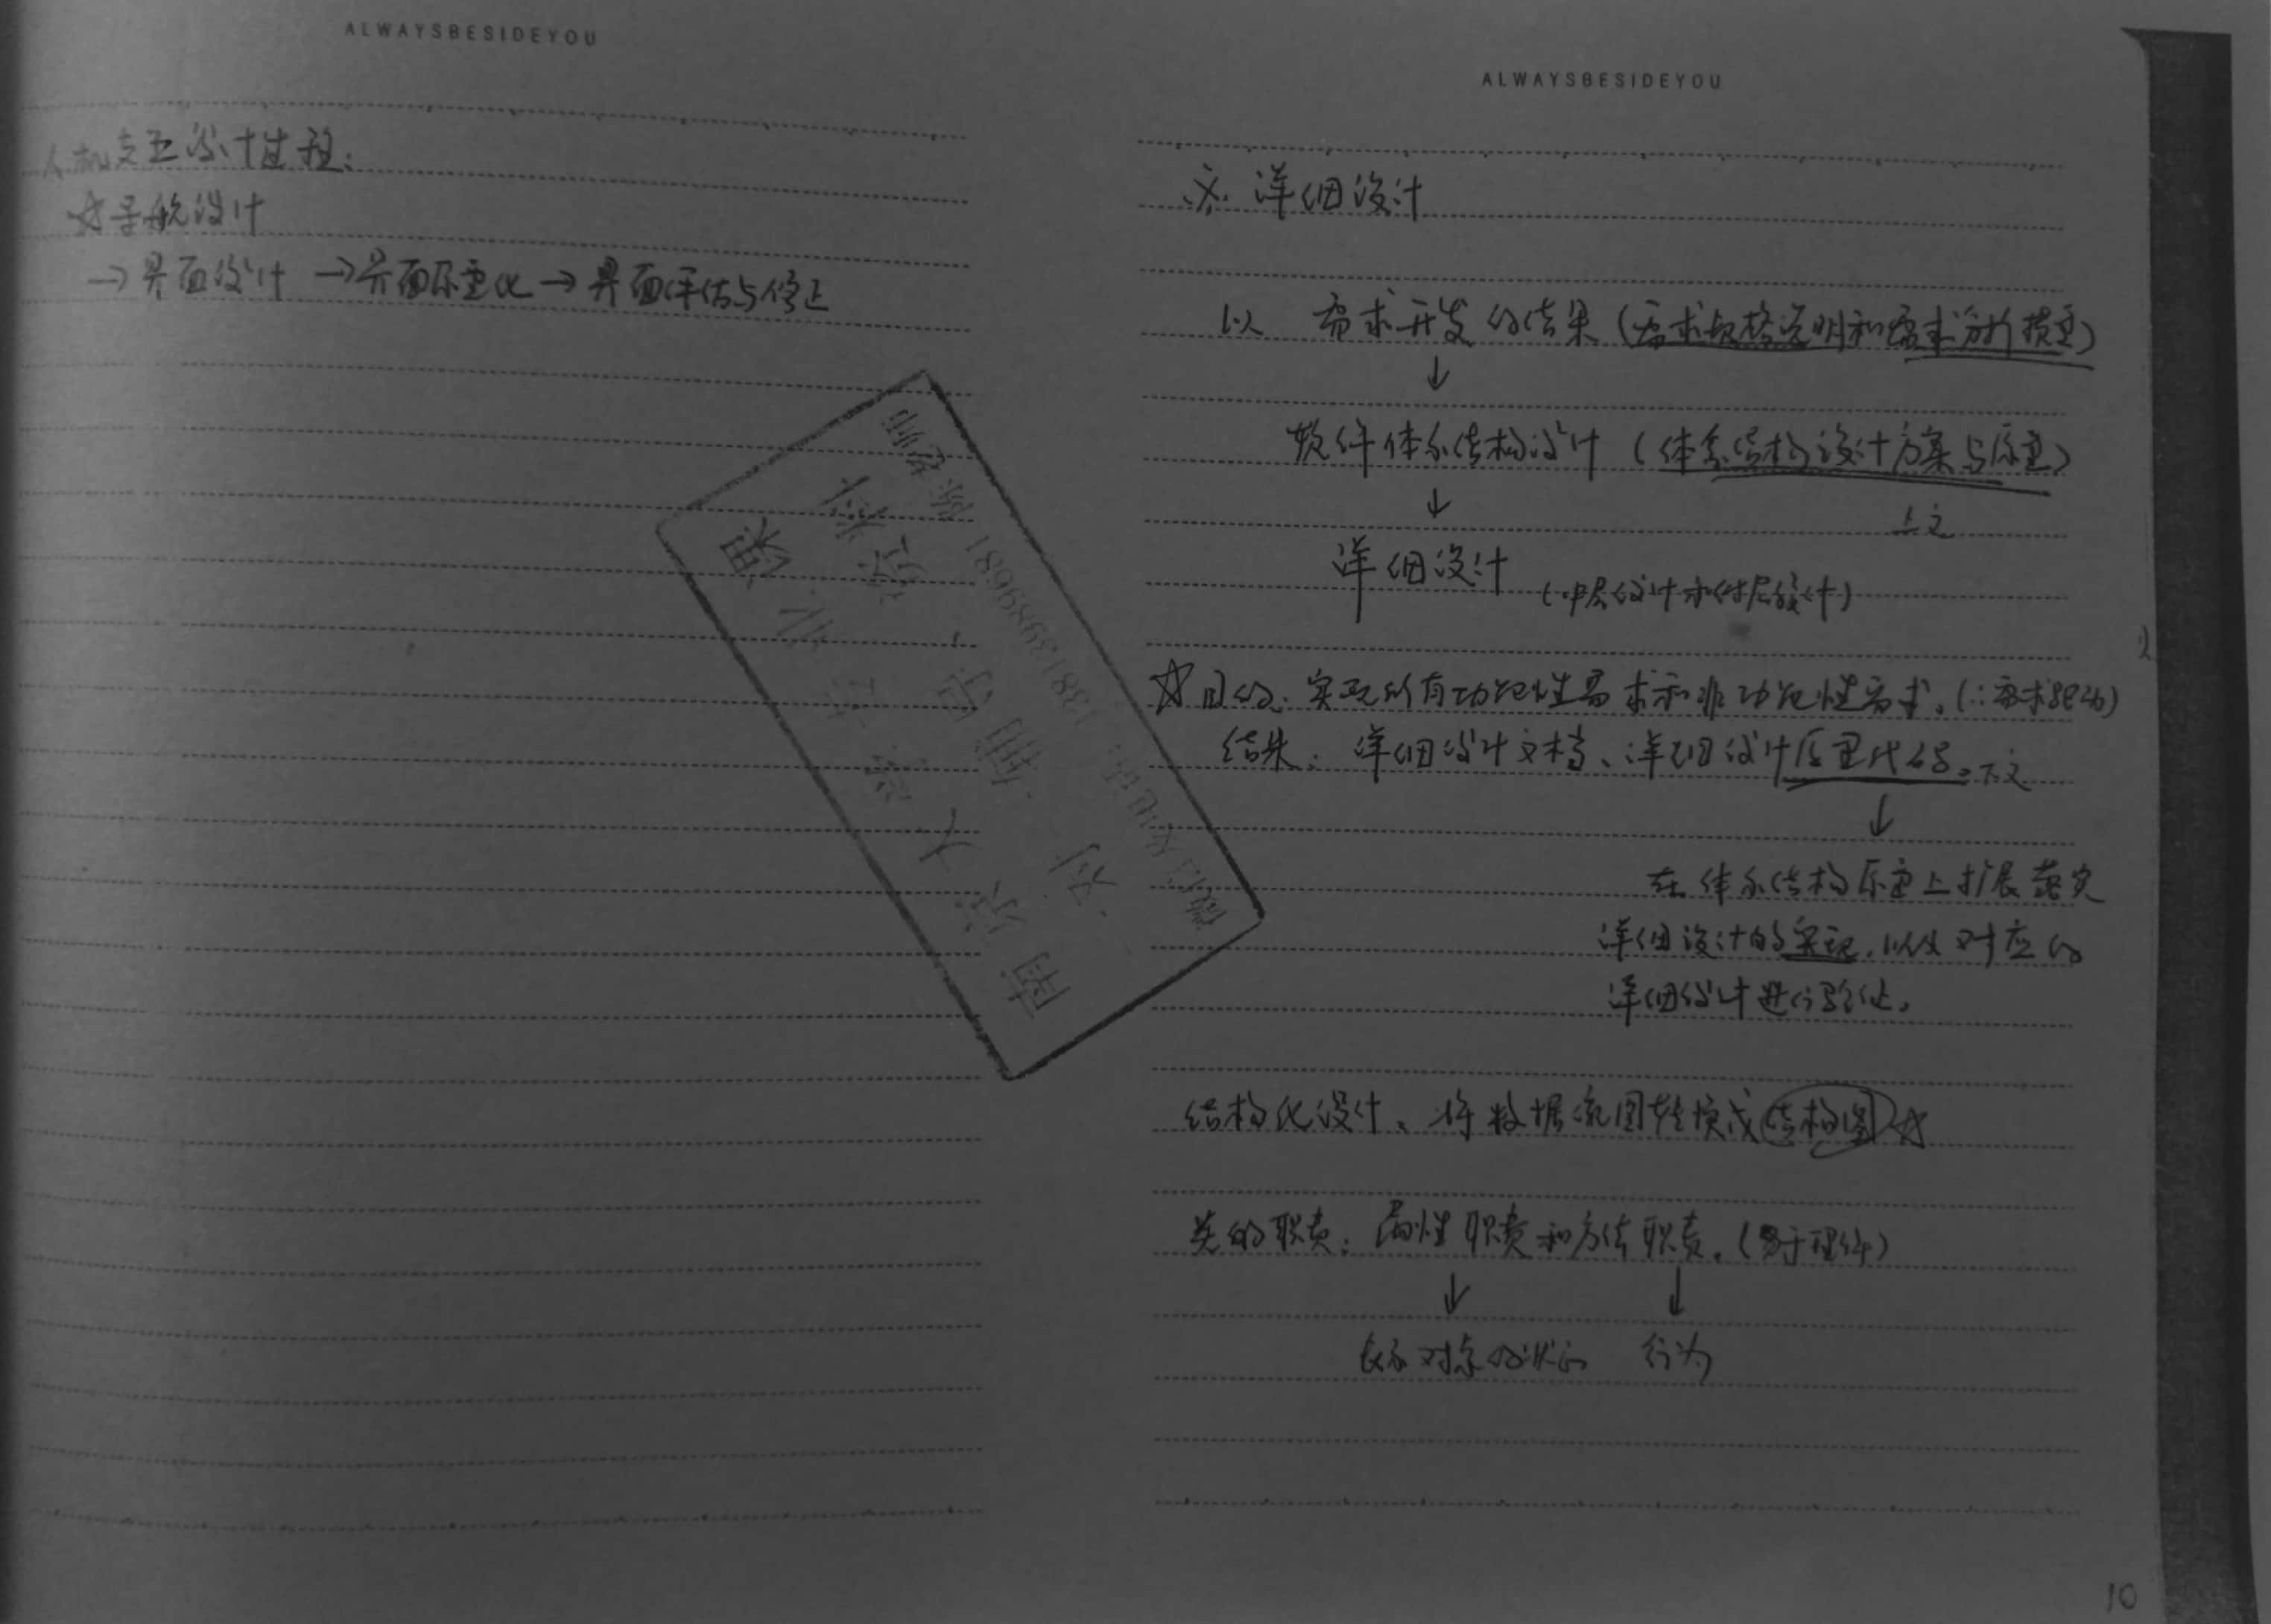 ALWAYSBESIDEYOU
人机交互设计过程:
☆导航设计
→界面设计 →界面原型化→界面评估与修正
ALWAYSBESIDEYOU
六. 详细设计
以 需求开发的结果(需求规格说明和需求分析模型)
↓
软件体系结构设计(体系结构设计方案与原型)
↓ 上文
详细设计 (中层设计和低层设计)
☆目的: 实现所有功能性需求和非功能性需求。(∴需求驱动)
结果: 详细设计文档、详细设计原型代码。下文
↓
在体系结构原型上扩展落实
详细设计的实现, 以及对应的
详细设计进行验证。
结构化设计、将数据流图转换成结构图☆
类的职责: 属性职责和方法职责。(易于理解)
↓ ↓
表示对象的状态 行为
南京大学专业课
刘 辅导 资料
微信及电话 13813989681 陈老师
10